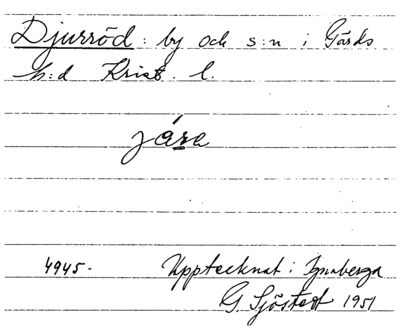 Djurröd : by och s:n i Gärds
h:d Krist. l.
jára
4945. Upptecknat i Ignaberga
G. Sjöstedt 1951